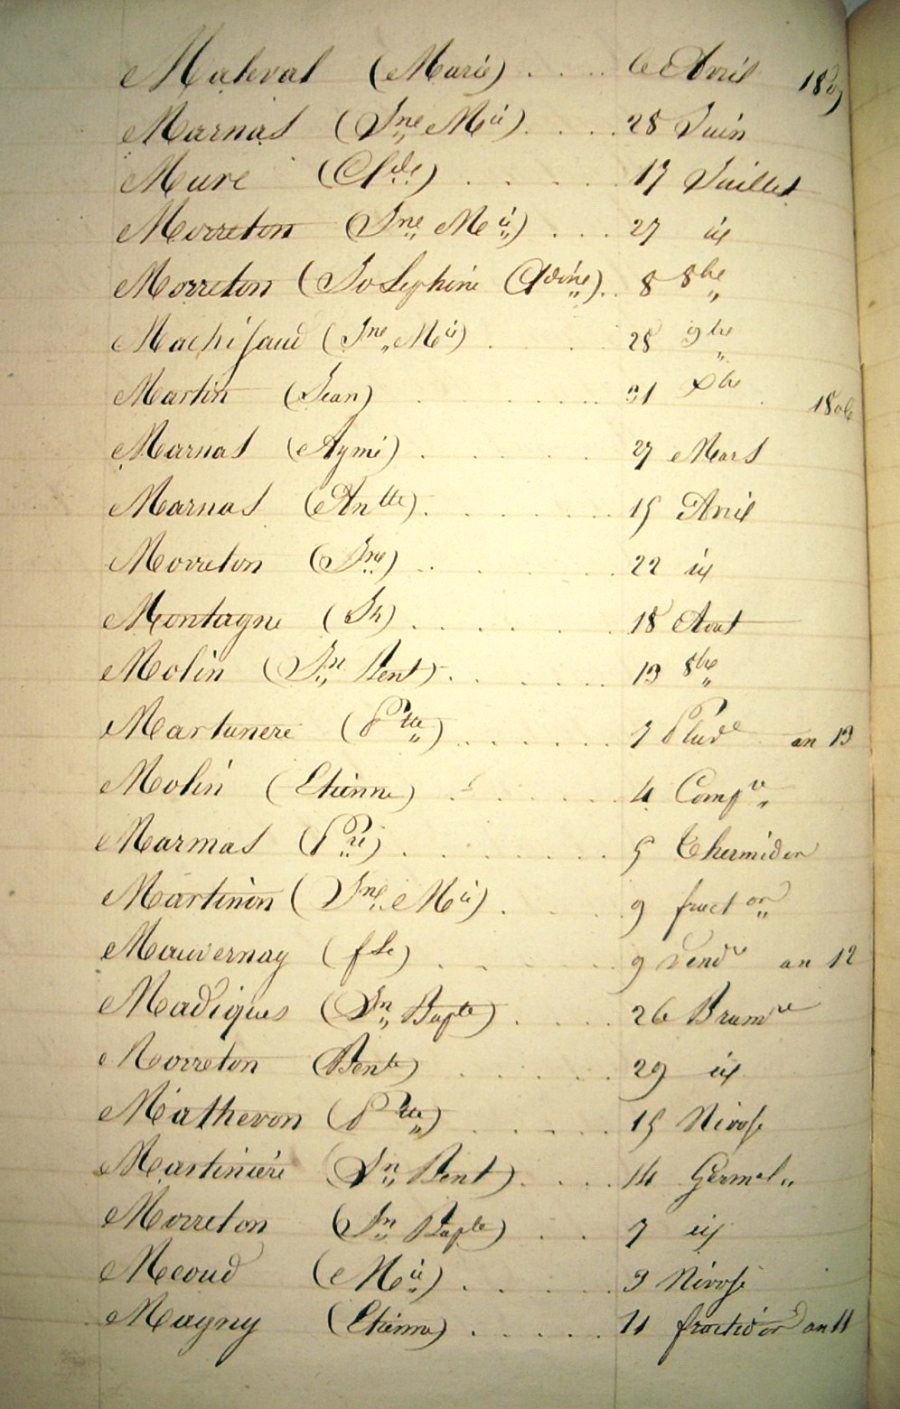 Maleval (Marie) .... 6 Avril 1807
Marnas (Jne Mie) .... 28 Juin
Mure (Clde) .... 17 Juillet
Morreton (Jne Mie) ... 27 id
Morreton (Josephine Cldine) .. 8 8bre
(Jne Mie) . . . 28 9bre
Martin (Jean) .... 31 Xbre 1806
Marnas (Aymé) .... 27 Mars
Marnas (Antte) .... 15 Avril
Morreton (Jne) .... 22 id
Montagne (Jh) .... 18 Aout
Molin (Jn Bent) .... 19 8bre
(Prre) .... 7 Pluve an 13
Molin (Etienne) .... 4 Compre
Marmas (Pre) .... 5 Thermidor
Martinon (Jne Mie) .... 9 fructor
Mauvernay (fse) .... 9 Vendre an 12
Madigues (Jn Bapte) .... 26 Brumre
Morreton (Bente) .... 29 id
Mathevon (Prre) .... 15 Nivose
Martiniere (Jn Bent) .... 14 Germal
Morreton (Jn Bapte) ... 7 id
(Mie) .... 9 Nivose
Magny (Etienne) .... 11 fructidor an 11